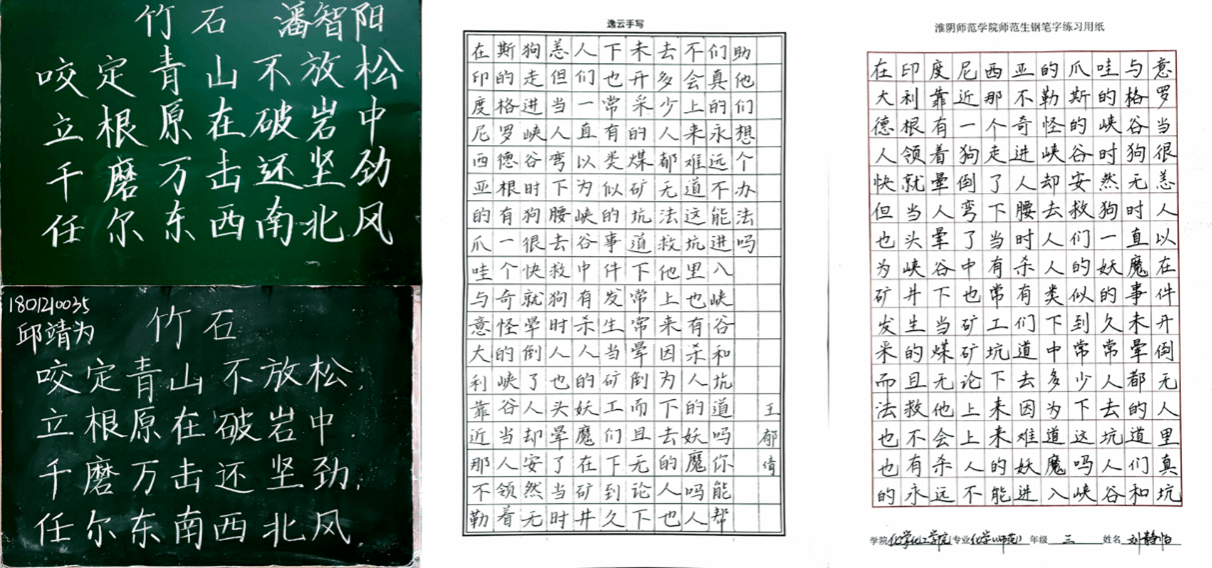 竹石 潘智阳
咬定青山不放松
立根原在破岩中
千磨万击还坚劲
任尔东西南北风
1801210035
邱靖为
竹石
咬定青山不放松.
立根原在破岩中.
千磨万击还坚劲.
任尔东南西北风.
逸云手写
在印度尼西亚的爪哇与意大利靠近那不勒
斯的格罗德根有一个奇怪的峡谷当人领着
狗走进峡谷时狗很快就晕倒了人却安然无
恙但当人弯下腰去救狗时人也头晕了当时
人们一直以为峡谷中有杀人的妖魔在矿井
下也常有类似的事件发生当矿工们下到久
未开采的煤矿坑道中常常晕倒而且无论下
去多少人都无法救他上来因为下去的人也
不会上来难道这坑里也有杀人的妖魔吗人
们真的永远不能进入峡谷和坑道吗你能帮
助他们想个办法吗
王郁倩
淮阴师范学院师范生钢笔字练习用纸
在印度尼西亚的爪哇与意
大利靠近那不勒斯的格罗
德根有一个奇怪的峡谷当
人领着狗走进峡谷时狗很
快就晕倒了人却安然无恙
但当人弯下腰去救狗时人
也头晕了当时人们一直以
为峡谷中有杀人的妖魔在
矿井下也常有类似的事件
发生当矿工们下到久未开
采的煤矿坑道中常常晕倒
而且无论下去多少人都无
法救他上来因为下去的人
也不会上来难道这坑道里
也有杀人的妖魔吗人们真
的永远不能进入峡谷和坑
学院化学化工学院专业化学(师范) 年级 三 姓名